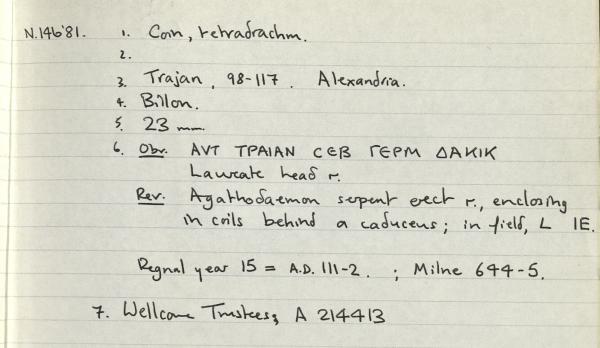 N.146'81. 1. Coin, tetradrachm.
2.
3. Trajan, 98-117. Alexandria.
4. Billon.
5. 23 mm.
6. Obv. ΑVΤ ΤΡΑΙΑΝ CЄΒ ΓЄΡΜ ΔΑΚΙΚ
Laureate head r.
Rev. Agathodaemon serpent erect r., enclosing
in coils behind a caduceus; in field, L IE.
Regnal year 15 = A.D. 111-2. ; Milne 644-5.
7. Wellcome Trustees, A 214413